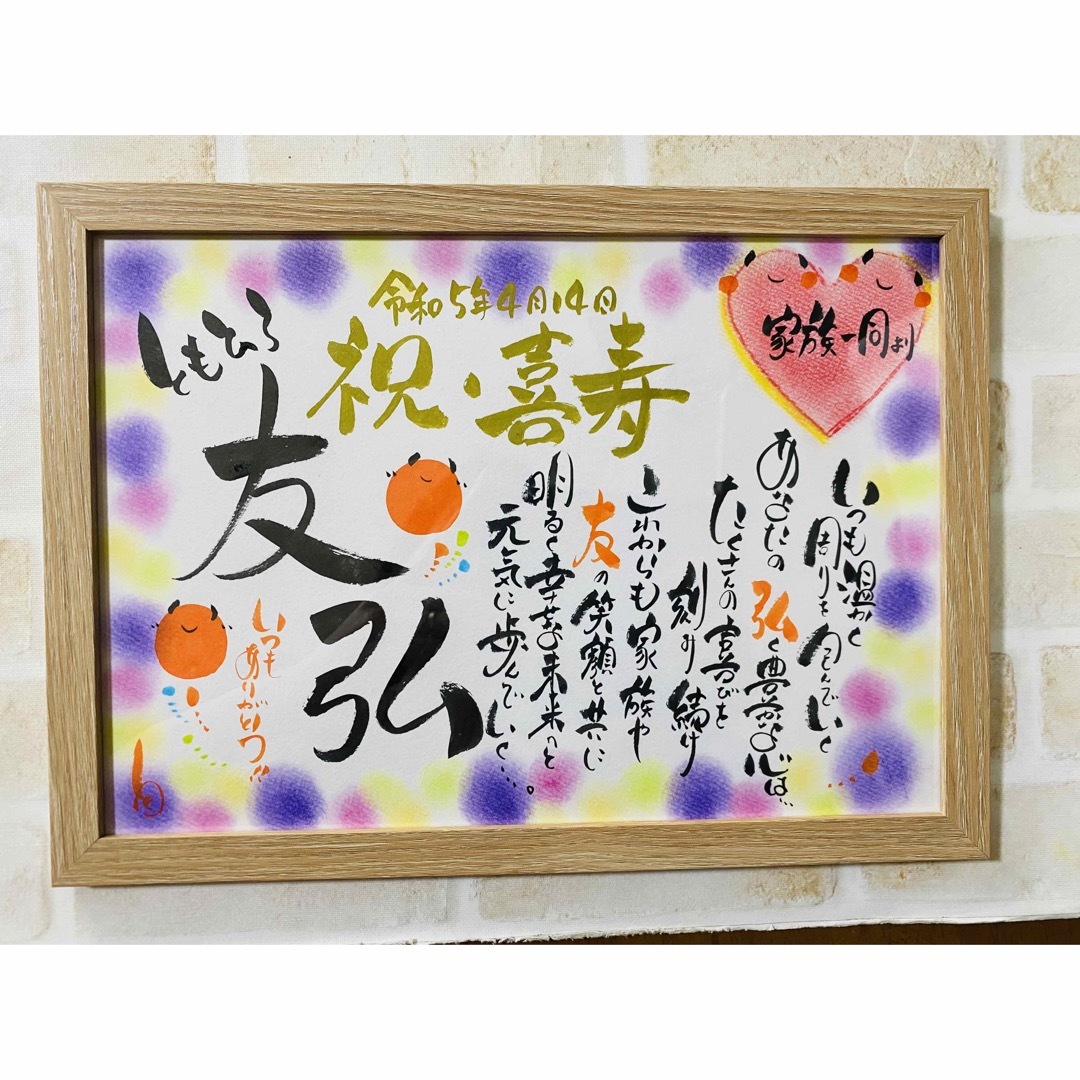 令和5年4月14日
祝・喜寿
家族一同より
ともひろ
友弘
いつも温かく
周りを包んでいく
あなたの弘く豊かな心は…
たくさんの喜びを
刻み続け
これからも家族や
友の笑顔と共に
明るく幸せな未来へと
元気に歩んでいく…。
いつも
ありがとう!!